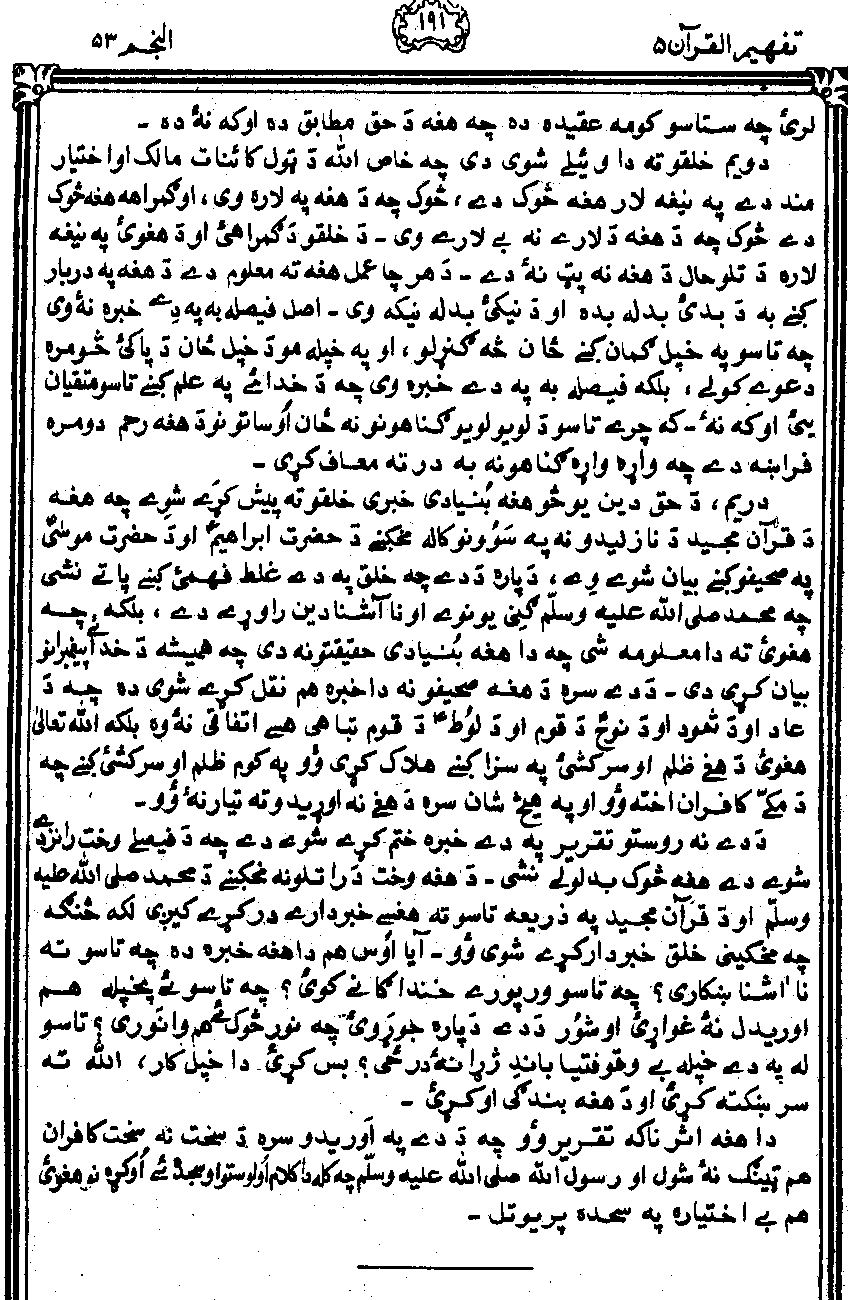 تفهيم القرآن ۵
۱۹۱
النجم ۵۳
لرئ چه ستاسو کومه عقيده ده چه هغه دَ حق مطابق ده اوکه نهٔ ده ـ
دويم خلقو ته دا وئيلے شوى دى چه خاص الله دَ ټول کائنات مالک او اختيار
مند دے په نيغه لار هغه څوک دے، څوک چه دَ هغه په لاره وى، او ګمراه هغه څوک
دے څوک چه دَ هغه دَ لارے نه بے لارے وى ـ دَ خلقو دَ ګمراهئ او دَ هغوئ په نيغه
لاره دَ تلو حال دَ هغه نه پټ نهٔ دے ـ دَ هر چا عمل هغه ته معلوم دے دَ هغه په دربار
کښے به دَ بدئ بدله بده او دَ نيکئ بدله نيکه وى ـ اصل فيصله به په دے خبره نهٔ وى
چه تاسو په خپل ګمان کښے ځان څه ګنړلو، او په خپله مو دَ خپل ځان دَ پاکئ څومره
دعوے کولے، بلکه فيصله به په دے خبره وى چه دَ خدائے په علم کښے تاسو متقيان
يئ اوکه نهٔ ـ که چرے تاسو دَ لويو لويو ګناهونو نه ځان اُوساتو نو دَ هغه رحم دومره
فراښه دے چه واړه واړه ګناهونه به درته معاف کړى ـ
دريم، دَ حق دين يو څو هغه بُنيادى خبرى خلقو ته پيش کړے شوے چه هغه
دَ قرآن مجيد دَ نازليدو نه په سَوُونو کاله مخکښے دَ حضرت ابراهيمؑ او دَ حضرت موسىٰؑ
په صحيفو کښے بيان شوے وے، دَ پاره دَ دے چه خلق په دے غلط فهمئ کښے پاتے نشى
چه محمد صلى الله عليه وسلّم ګنى يو نوے او نا آشنا دين راوړے دے، بلکه چه
هغوئ ته دا معلومه شى چه دا هغه بُنيادى حقيقتونه دى چه هميشه دَ خدائے پيغمبرانو
بيان کړى دى ـ دَ دے سره دَ هغه صحيفو نه دا خبره هم نقل کړے شوى ده چه دَ
عاد او دَ ثمود او دَ نوحؑ دَ قوم او دَ لُوطؑ دَ قوم تباهى هسے اتفاقى نهٔ وه بلکه الله تعالىٰ
هغوئ دَ هغے ظلم او سرکشئ په سزا کښے هلاک کړى وُو په کوم ظلم او سرکشئ کښے چه
دَ مکّے کافران اخته وُو او په هيڅ شان سره دَ هغے نه اوړيدو ته تيار نهٔ وُو ـ
دَ دے نه روستو تقرير په دے خبره ختم کړے شوے دے چه دَ فيصلے وخت رانزدے
شوے دے هغه څوک بدلولے نشى ـ دَ هغه وخت دَ راتلو نه مخکښے دَ محمد صلى الله عليه
وسلّم او دَ قرآن مجيد په ذريعه تاسو ته هغسے خبردارے درکړے کيږى لکه څنګه
چه مخکينى خلق خبردار کړے شوى وُو ـ آيا اوس هم دا هغه خبره ده چه تاسو ته
نا اشنا ښکارى؟ چه تاسو ورپورے خندا ګانے کوئ؟ چه تاسو ئے پخپله هم
اوريدل نهٔ غواړئ او شور دَ دے دَ پاره جوړوئ چه نور څوک ئے هم وانورى؟ تاسو
له په دے خپله بے وقوفتيا باندِ ژړا نهٔ درځى؟ بس کړئ دا خپل کار، الله ته
سر ښکته کړئ او دَ هغه بندګى اوکړئ ـ
دا هغه اثر ناکه تقرير وُو چه دَ دے په اَوريدو سره دَ سخت نه سخت کافران
هم ټينګ نهٔ شول او رسول الله صلى الله عليه وسلّم چه کله دا کلام اُولوستو او سجده ئے اُوکړه نو هغوئ
هم بے اختياره په سجده پريوتل ـ